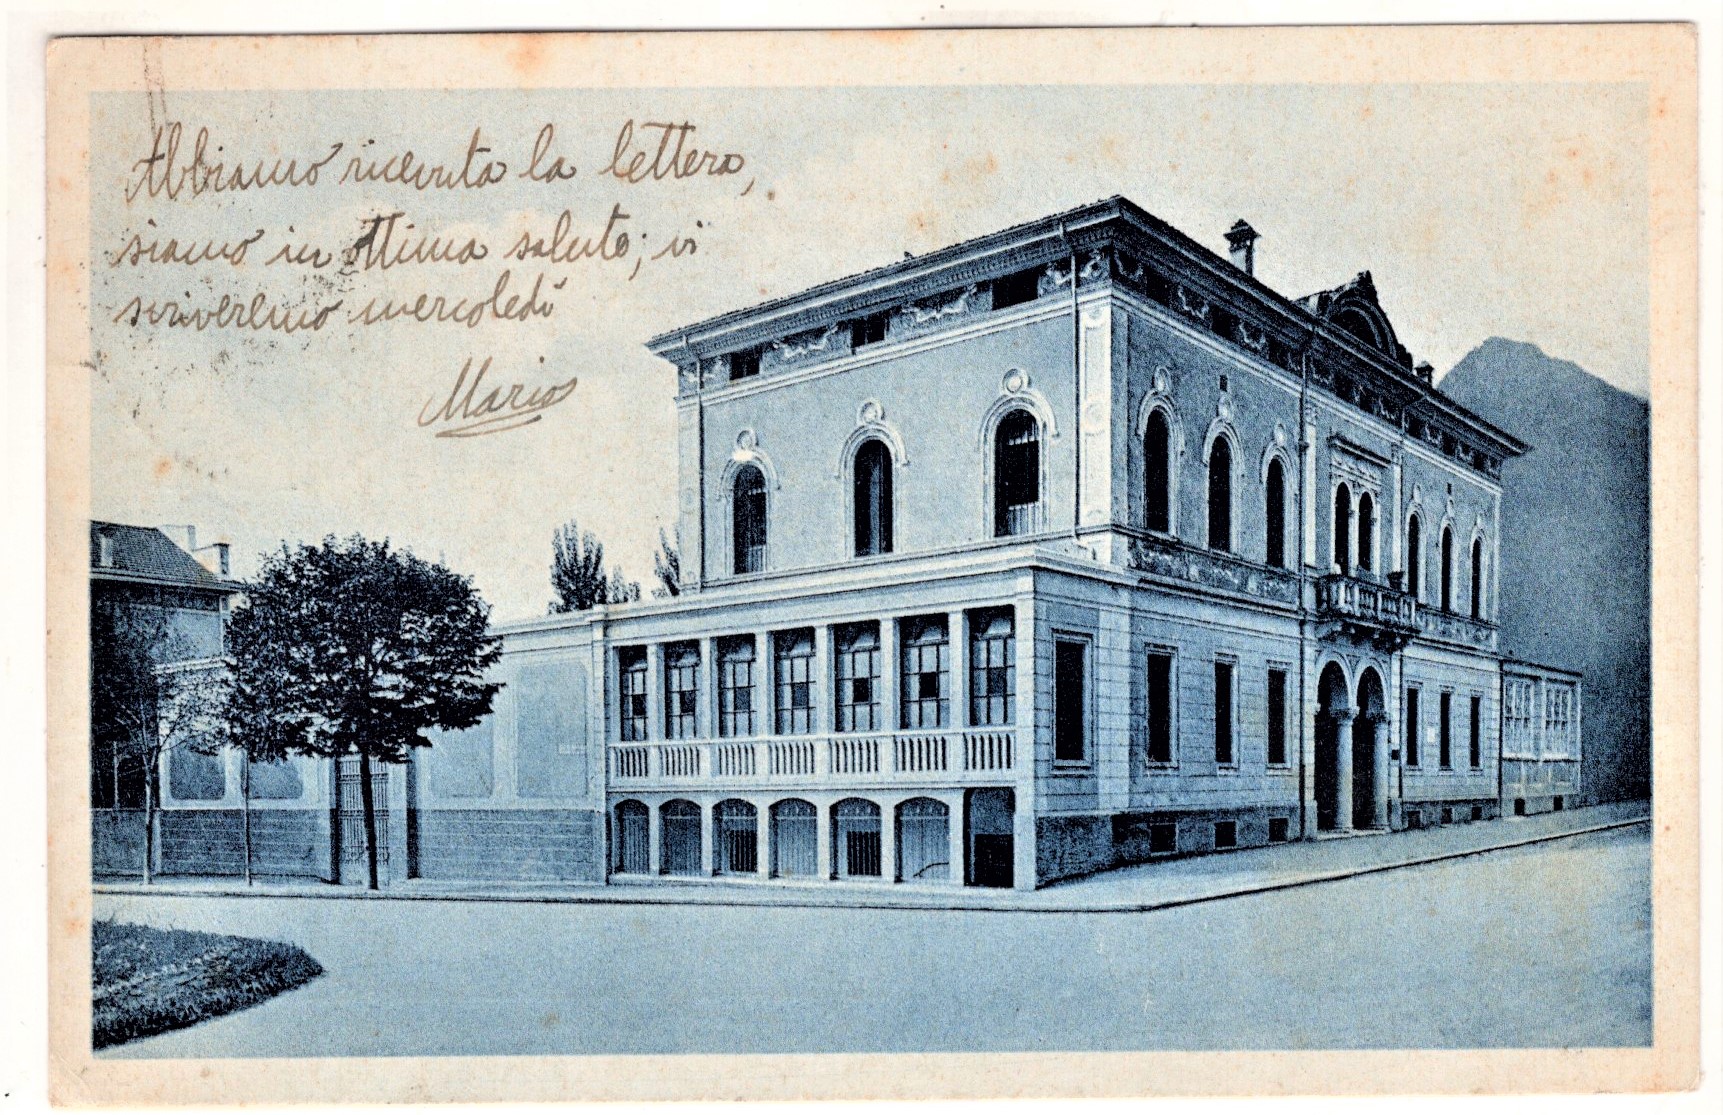 Abbiamo ricevuta la lettera,
siamo in ottima salute; vi
scriveremo mercoledì
Mario